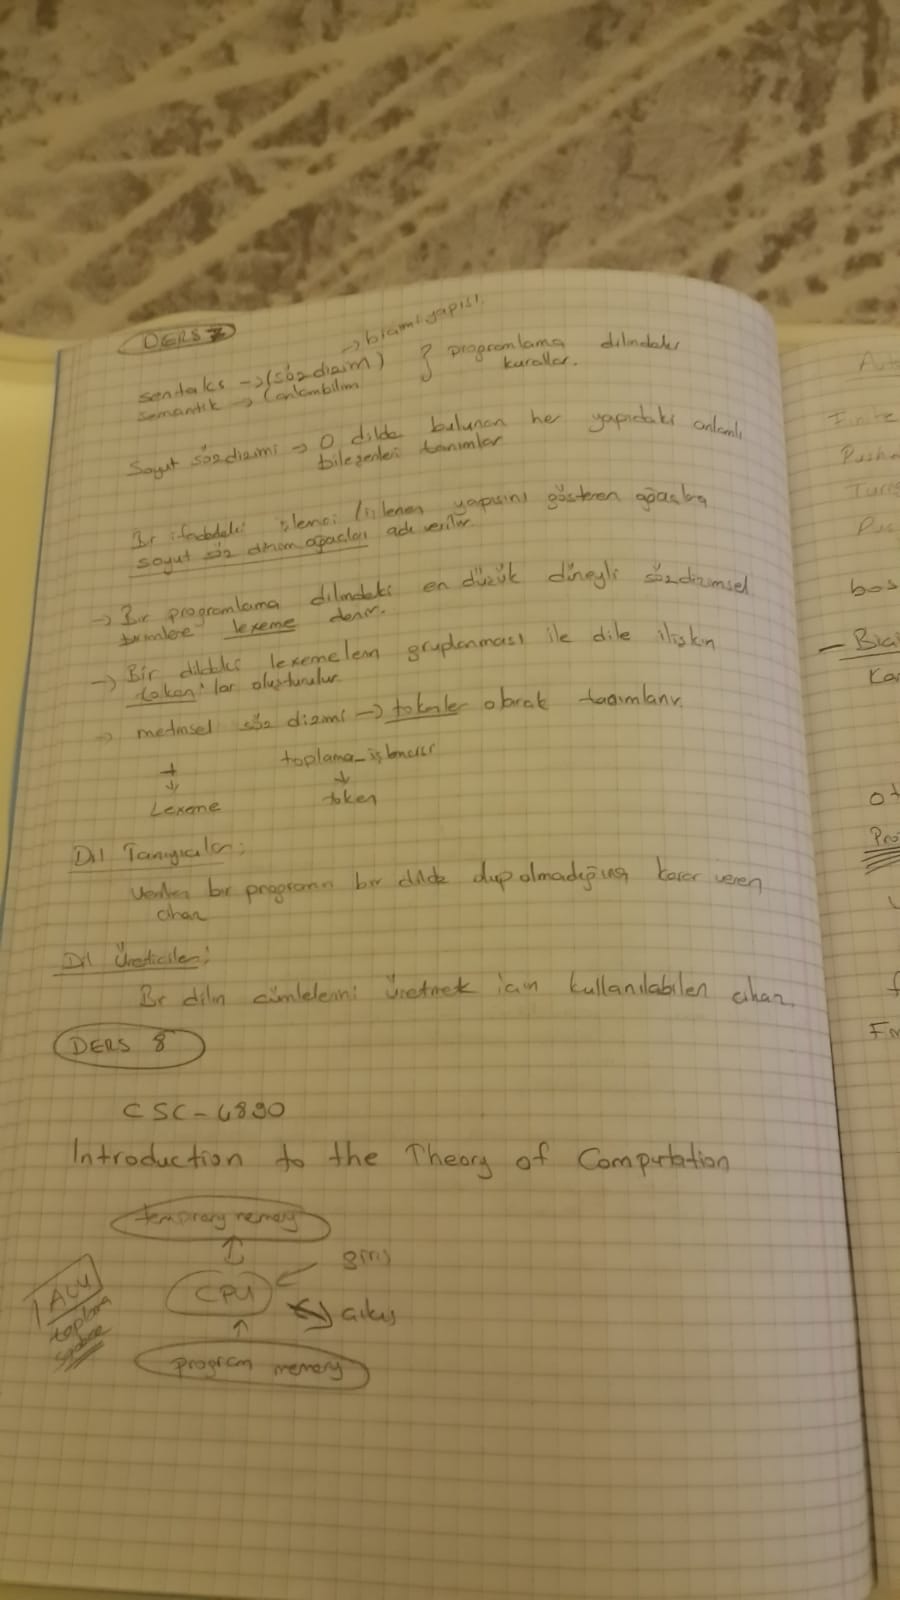 DERS 7
→ biçimi yapısı
sentaks → (sözdizim) } programlama dilindeki
semantik → (anlambilim kurallar.
Soyut sözdizimi → O dilde bulunan her yapıdaki anlamlı
bileşenleri tanımlar
Bir ifadedeki işlemci / işlenen yapısını gösteren ağaçlara
soyut söz dizim ağaçları adı verilir.
→ Bir programlama dilindeki en düşük düzeyli sözdizimsel
birimlere lexeme denir.
→ Bir dildeki lexemelerin gruplanması ile dile ilişkin
token'lar oluşturulur
→ metinsel söz dizimi → tokenler olarak tanımlanır.
+ toplama_işlemcisi
↓ ↓
Lexeme token
Dil Tanıyıcılar:
Verilen bir programın bir dilde olup olmadığına karar veren
cihaz
Dil Üreticileri:
Bir dilin cümlelerini üretmek için kullanılabilen cihaz.
DERS 8
CSC-4890
Introduction to the Theory of Computation
temporary memory
giriş
CPU
çıkış
ALU
toplama
program memory
Finite
Push
Turi
bos
Pro